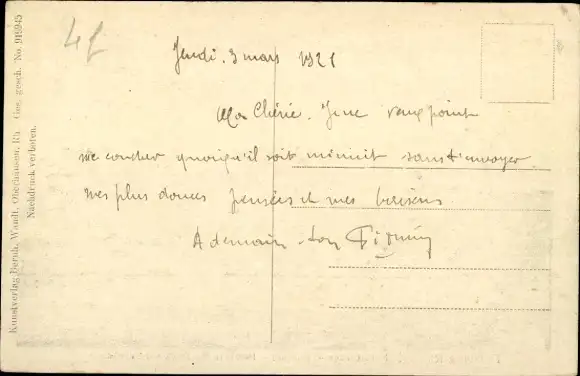 4f
Jeudi. 3 mars 1921
Ma Chérie. Je ne veux point
me coucher quoiqu'il soit minuit sans t'envoyer
mes plus douces pensées et mes baisers
A demain. ton
Kunstverlag Bernh. Wandt, Oberhausen, Rh. Ges. gesch. No. 918945
Nachdruck verboten.